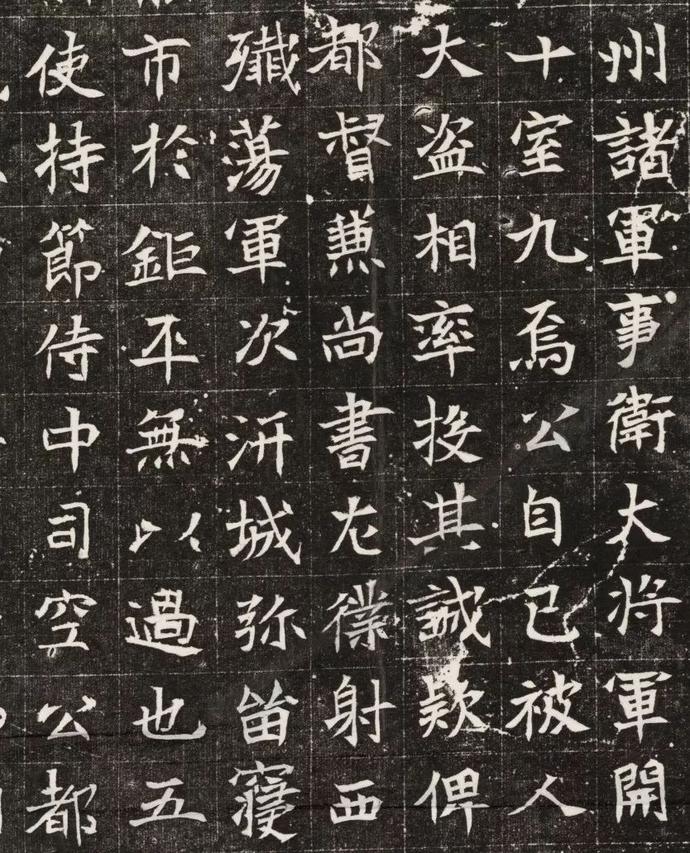 州諸軍事衛大将軍開
十室九焉公自已被人
大盗相率投其誠欵俾
都督兼尚書左僕射西
殲蕩軍次汧城弥留寢
市於鉅平無以過也五
使持節侍中司空公都